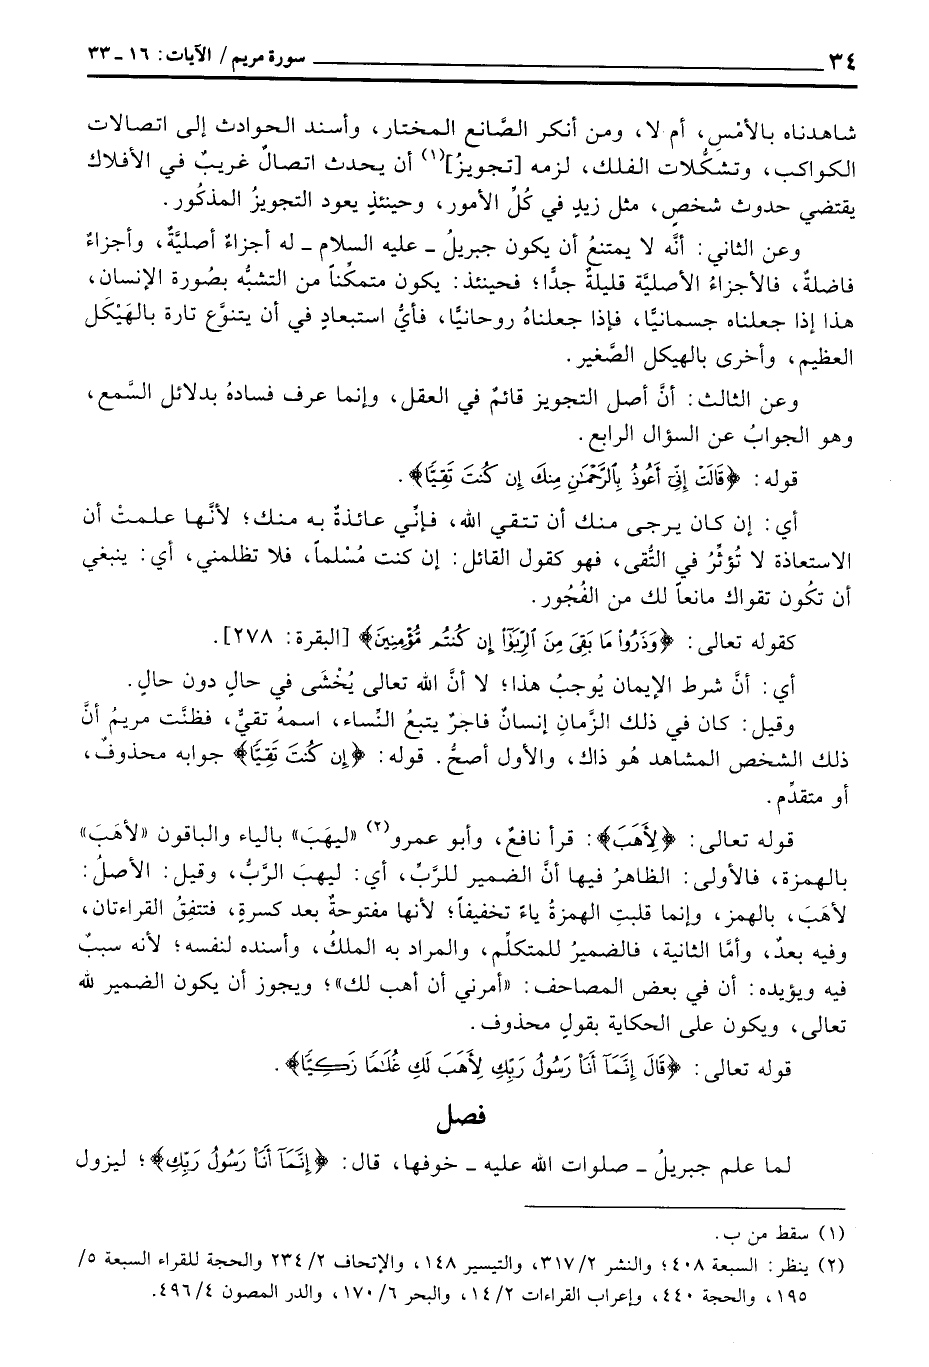 ٣٤ سورة مريم / الآيات: ١٦ ـ ٣٣
شاهدناه بالأمْسِ، أم لا، ومن أنكر الصَّانع المختار، وأسند الحوادث إلى اتصالات
الكواكب، وتشكُّلات الفلك، لزمه [تجويزُ](١) أن يحدث اتصالٌ غريبٌ في الأفلاك
يقتضي حدوث شخصٍ، مثل زيدٍ في كُلِّ الأمور، وحينئذٍ يعود التجويزُ المذكُور.
وعن الثاني: أنَّه لا يمتنعُ أن يكون جبريلُ ـ عليه السلام ـ له أجزاءٌ أصليَّةٌ، وأجزاءٌ
فاضلةٌ، فالأجزاءُ الأصليَّة قليلةٌ جدًّا؛ فحينئذ: يكون متمكِّناً من التشبُّه بصُورة الإنسان،
هذا إذا جعلناه جسمانيًّا، فإذا جعلناهُ روحانيًّا، فأيُّ استبعادٍ في أن يتنوَّع تارة بالهَيْكَل
العظيم، وأخرى بالهيكل الصَّغير.
وعن الثالث: أنَّ أصل التجويز قائمٌ في العقل، وإنما عرف فسادهُ بدلائل السَّمع،
وهو الجوابُ عن السؤال الرابع.
قوله: ﴿قَالَتْ إِنِّيٓ أَعُوذُ بِٱلرَّحْمَٰنِ مِنكَ إِن كُنتَ تَقِيًّا﴾.
أي: إن كان يرجى منك أن تتقي الله، فإنِّي عائذةٌ به منك؛ لأنَّها علمتْ أن
الاستعاذة لا تُؤثِّرُ في التُّقى، فهو كقول القائل: إن كنت مُسْلماً، فلا تظلمني، أي: ينبغي
أن تكُون تقواك مانعاً لك من الفُجُور.
كقوله تعالى: ﴿وَذَرُواْ مَا بَقِيَ مِنَ ٱلرِّبَوٰٓاْ إِن كُنتُم مُّؤْمِنِينَ﴾ [البقرة: ٢٧٨].
أي: أنَّ شرط الإيمان يُوجبُ هذا؛ لا أنَّ الله تعالى يُخْشَى في حالٍ دون حالٍ.
وقيل: كان في ذلك الزَّمانِ إنسانٌ فاجرٌ يتبعُ النِّساء، اسمهُ تقيٌّ، فظنَّت مريمُ أنَّ
ذلك الشخص المشاهد هُو ذاك، والأول أصحُّ. قوله: ﴿إِن كُنتَ تَقِيًّا﴾ جوابه محذوفٌ،
أو متقدِّم.
قوله تعالى: ﴿لِأَهَبَ﴾: قرأ نافعٌ، وأبو عمرو(٢) «ليهَبَ» بالياء والباقون «لأهَبَ»
بالهمزة، فالأولى: الظاهرُ فيها أنَّ الضمير للرَّبِّ، أي: ليهبَ الرَّبُّ، وقيل: الأصلُ:
لأهَبَ، بالهمز، وإنما قلبتِ الهمزةُ ياءً تخفيفاً؛ لأنها مفتوحةٌ بعد كسرةٍ، فتتفِقُ القراءتان،
وفيه بعدٌ، وأمَّا الثانية، فالضميرُ للمتكلِّم، والمراد به الملكُ، وأسنده لنفسه؛ لأنه سببٌ
فيه ويؤيده: أن في بعض المصاحف: «أمرني أن أهب لك»؛ ويجوز أن يكون الضمير لله
تعالى، ويكون على الحكاية بقولٍ محذوف.
قوله تعالى: ﴿قَالَ إِنَّمَآ أَنَا۠ رَسُولُ رَبِّكِ لِأَهَبَ لَكِ غُلَٰمًا زَكِيًّا﴾.
فصل
لما علم جبريلُ ـ صلوات الله عليه ـ خوفها، قال: ﴿إِنَّمَآ أَنَا۠ رَسُولُ رَبِّكِ﴾؛ ليزول
(١) سقط من ب.
(٢) ينظر: السبعة ٤٠٨؛ والنشر ٢/٣١٧، والتيسير ١٤٨، والإتحاف ٢/٢٣٤ والحجة للقراء السبعة ٥/
١٩٥، والحجة ٤٤٠، وإعراب القراءات ٢/١٤، والبحر ٦/١٧٠، والدر المصون ٤/٤٩٦.